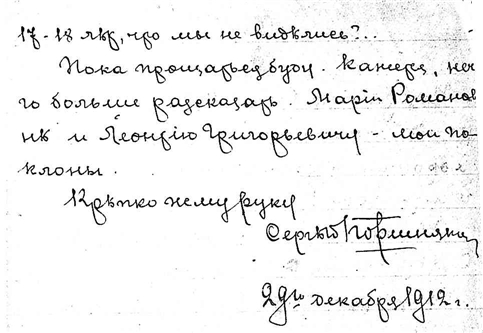 17-18 лѣт, что мы не видѣлись?..
Пока прощать буду. Кажетъ, неч
го больше разсказать. Марiи Романов
нѣ и Леонтiю Григорьевичу - мои по
клоны.
Крѣпко жму руку
Сергѣй
29го декабря 1912 г.